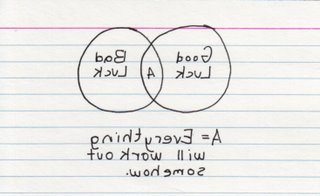 Bad
Luck
A
Good
Luck
A = Everything
will work out
somehow.